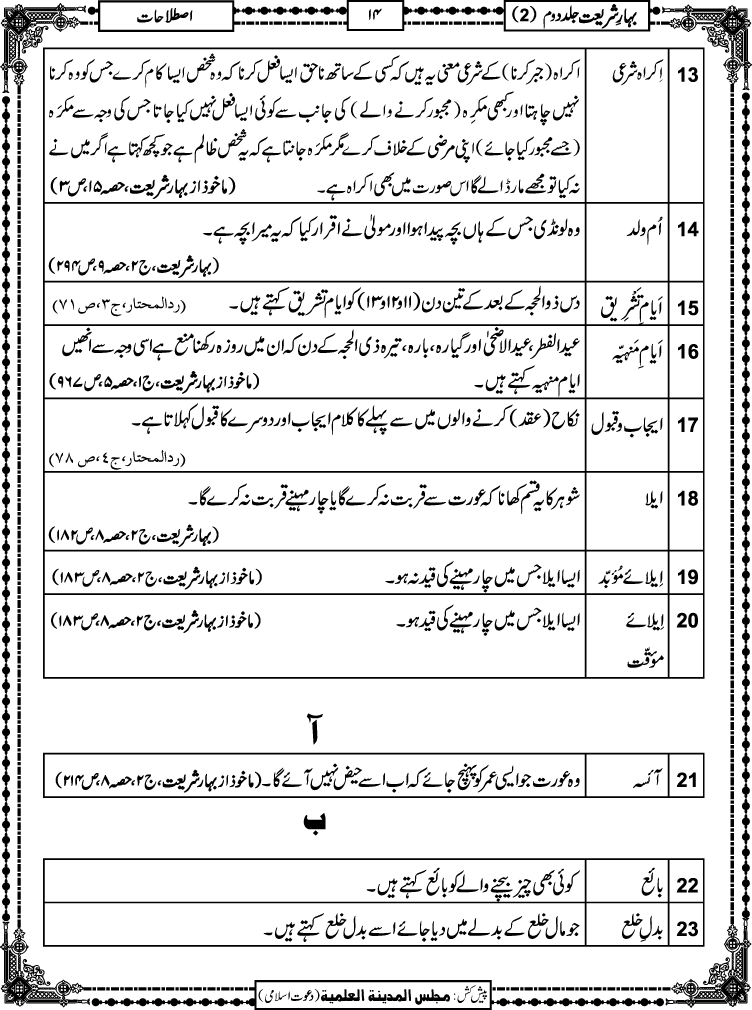 بہارِ شریعت جلد دوم (2)
۱۴
اصطلاحات
13 اِکراہ شرعی اکراہ (جبر کرنا) کے شرعی معنی یہ ہیں کہ کسی کے ساتھ ناحق ایسا فعل کرنا کہ وہ شخص ایسا کام کرے جس کو وہ کرنا
نہیں چاہتا اور کبھی مکرِہ (مجبور کرنے والے) کی جانب سے کوئی ایسا فعل نہیں کیا جاتا جس کی وجہ سے مکرَہ
(جسے مجبور کیا جائے) اپنی مرضی کے خلاف کرے مگر مکرَہ جانتا ہے کہ یہ شخص ظالم ہے جو کچھ کہتا ہے اگر میں نے
نہ کیا تو مجھے مار ڈالے گا اس صورت میں بھی اکراہ ہے۔ (ماخوذ از بہار شریعت، حصہ ۱۵، ص ۳)
14 اُم ولد وہ لونڈی جس کے ہاں بچہ پیدا ہوا اور مولیٰ نے اقرار کیا کہ یہ میرا بچہ ہے۔
(بہار شریعت، ج۲، حصہ ۹، ص ۲۹۴)
15 اَیامِ تَشْرِیق دس ذوالحجہ کے بعد کے تین دن (۱۱و۱۲و۱۳) کو ایام تشریق کہتے ہیں۔ (ردالمحتار، ج۳، ص ۷۱)
16 اَیامِ مَنہِیّہ عیدالفطر، عیدالاضحیٰ اور گیارہ، بارہ، تیرہ ذی الحجہ کے دن کہ ان میں روزہ رکھنا منع ہے اسی وجہ سے انھیں
ایام منہیہ کہتے ہیں۔ (ماخوذ از بہار شریعت، ج۱، حصہ ۵، ص ۹۶۷)
17 ایجاب و قبول نکاح (عقد) کرنے والوں میں سے پہلے کا کلام ایجاب اور دوسرے کا قبول کہلاتا ہے۔
(ردالمحتار، ج٤، ص ۷۸)
18 ایلا شوہر کا یہ قسم کھانا کہ عورت سے قربت نہ کرے گا یا چار مہینے قربت نہ کرے گا۔
(بہار شریعت، ج۲، حصہ ۸، ص ۱۸۲)
19 اِیلائے مُؤبّد ایسا ایلا جس میں چار مہینے کی قید نہ ہو۔ (ماخوذ از بہار شریعت، ج۲، حصہ ۸، ص ۱۸۳)
20 اِیلائے ایسا ایلا جس میں چار مہینے کی قید ہو۔ (ماخوذ از بہار شریعت، ج۲، حصہ ۸، ص ۱۸۳)
مؤقّت
آ
21 آئسہ وہ عورت جو ایسی عمر کو پہنچ جائے کہ اب اسے حیض نہیں آئے گا۔ (ماخوذ از بہار شریعت، ج۲، حصہ ۸، ص ۲۱۴)
ب
22 بائع کوئی بھی چیز بیچنے والے کو بائع کہتے ہیں۔
23 بدلِ خلع جو مال خلع کے بدلے میں دیا جائے اسے بدل خلع کہتے ہیں۔
پیش کش: مجلس المدینة العلمیة (دعوت اسلامی)